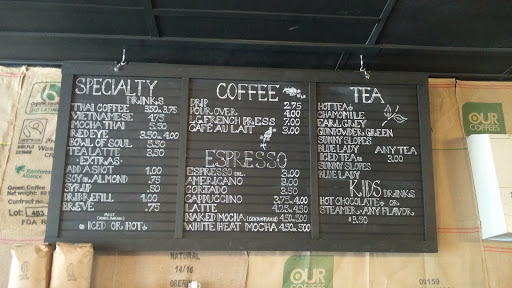 SPECIALTY
DRINKS
THAI COFFEE 3.50 & 3.75
VIETNAMESE 4.75
MOCHA THAI 5.50
RED EYE 3.50 & 4.00
BOWL OF SOUL 5.50
TEA LATTE 3.50
- EXTRAS -
ADD A SHOT 1.00
SOY & ALMOND .75
SYRUP .50
DRIB REFILL 1.00
BREVE .75
ICED OR HOT
COFFEE
DRIP 2.75
POUR OVER 4.00
LG. FRENCH PRESS 7.00
CAFÉ AU LAIT 3.00
ESPRESSO
ESPRESSO 3.00
AMERICANO 3.00
CORTADO 3.50
CAPPUCCINO 3.75 & 4.00
LATTE 4.25 & 4.50
NAKED MOCHA 4.50 & 5.00
WHITE HEAT MOCHA 4.50 & 5.00
TEA
HOT TEA
CHAMOMILE
EARL GREY
GUNPOWDER GREEN
SUNNY SLOPES
BLUE LADY ANY TEA
ICED TEA 3.00
SUNNY SLOPES
BLUE LADY
KIDS DRINKS
HOT CHOCOLATE OR
STEAMER & ANY FLAVOR
$3.50
OUR
COFFEES
Green Coffee
Lot:
NATURAL
14/16
OUR
COFFEES
09159